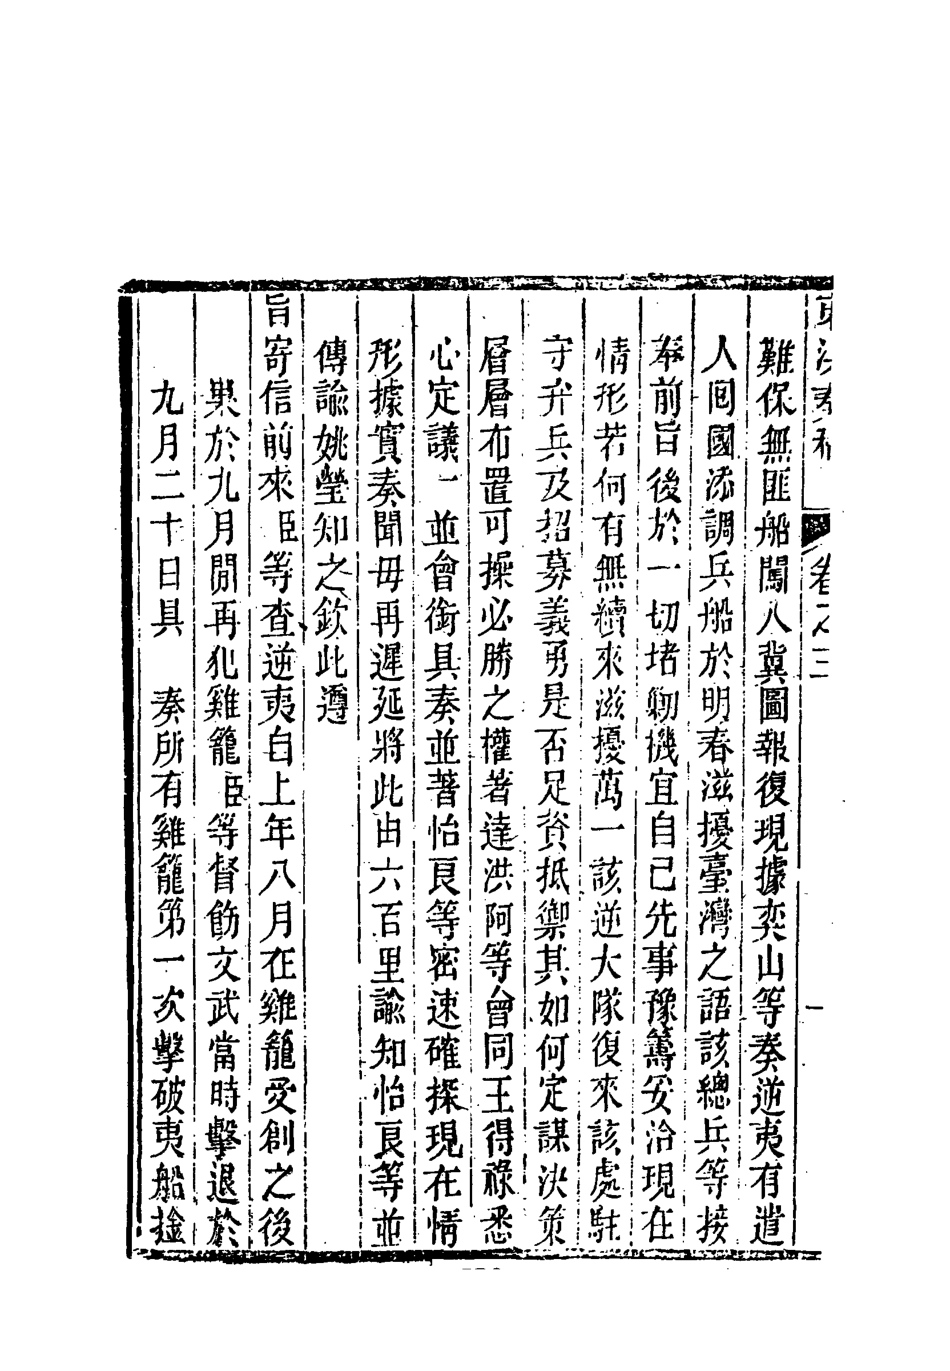 東溟奏稿 卷之三 一
難保無匪船闖入冀圖報復現據奕山等奏逆夷有遣
人囘國添調兵船於明春滋擾臺灣之語該總兵等接
奉前旨後於一切堵勦機宜自已先事豫籌妥洽現在
情形若何有無續來滋擾萬一該逆大隊復來該處駐
守弁兵及招募義勇是否足資抵禦其如何定謀決策
層層布置可操必勝之權著達洪阿等會同王得祿悉
心定議一並會銜具奏並著怡良等密速確探現在情
形據實奏聞毋再遲延將此由六百里諭知怡良等並
傳諭姚瑩知之欽此遵
旨寄信前來臣等查逆夷自上年八月在雞籠受創之後
果於九月閒再犯雞籠臣等督飭文武當時擊退於
九月二十日具 奏所有雞籠第一次擊破夷船捦